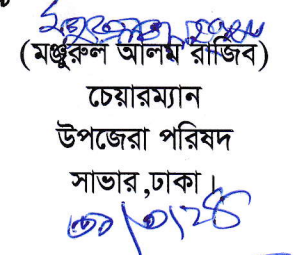 (মঞ্জুরুল আলম রাজিব)
চেয়ারম্যান
উপজেরা পরিষদ
সাভার,ঢাকা।